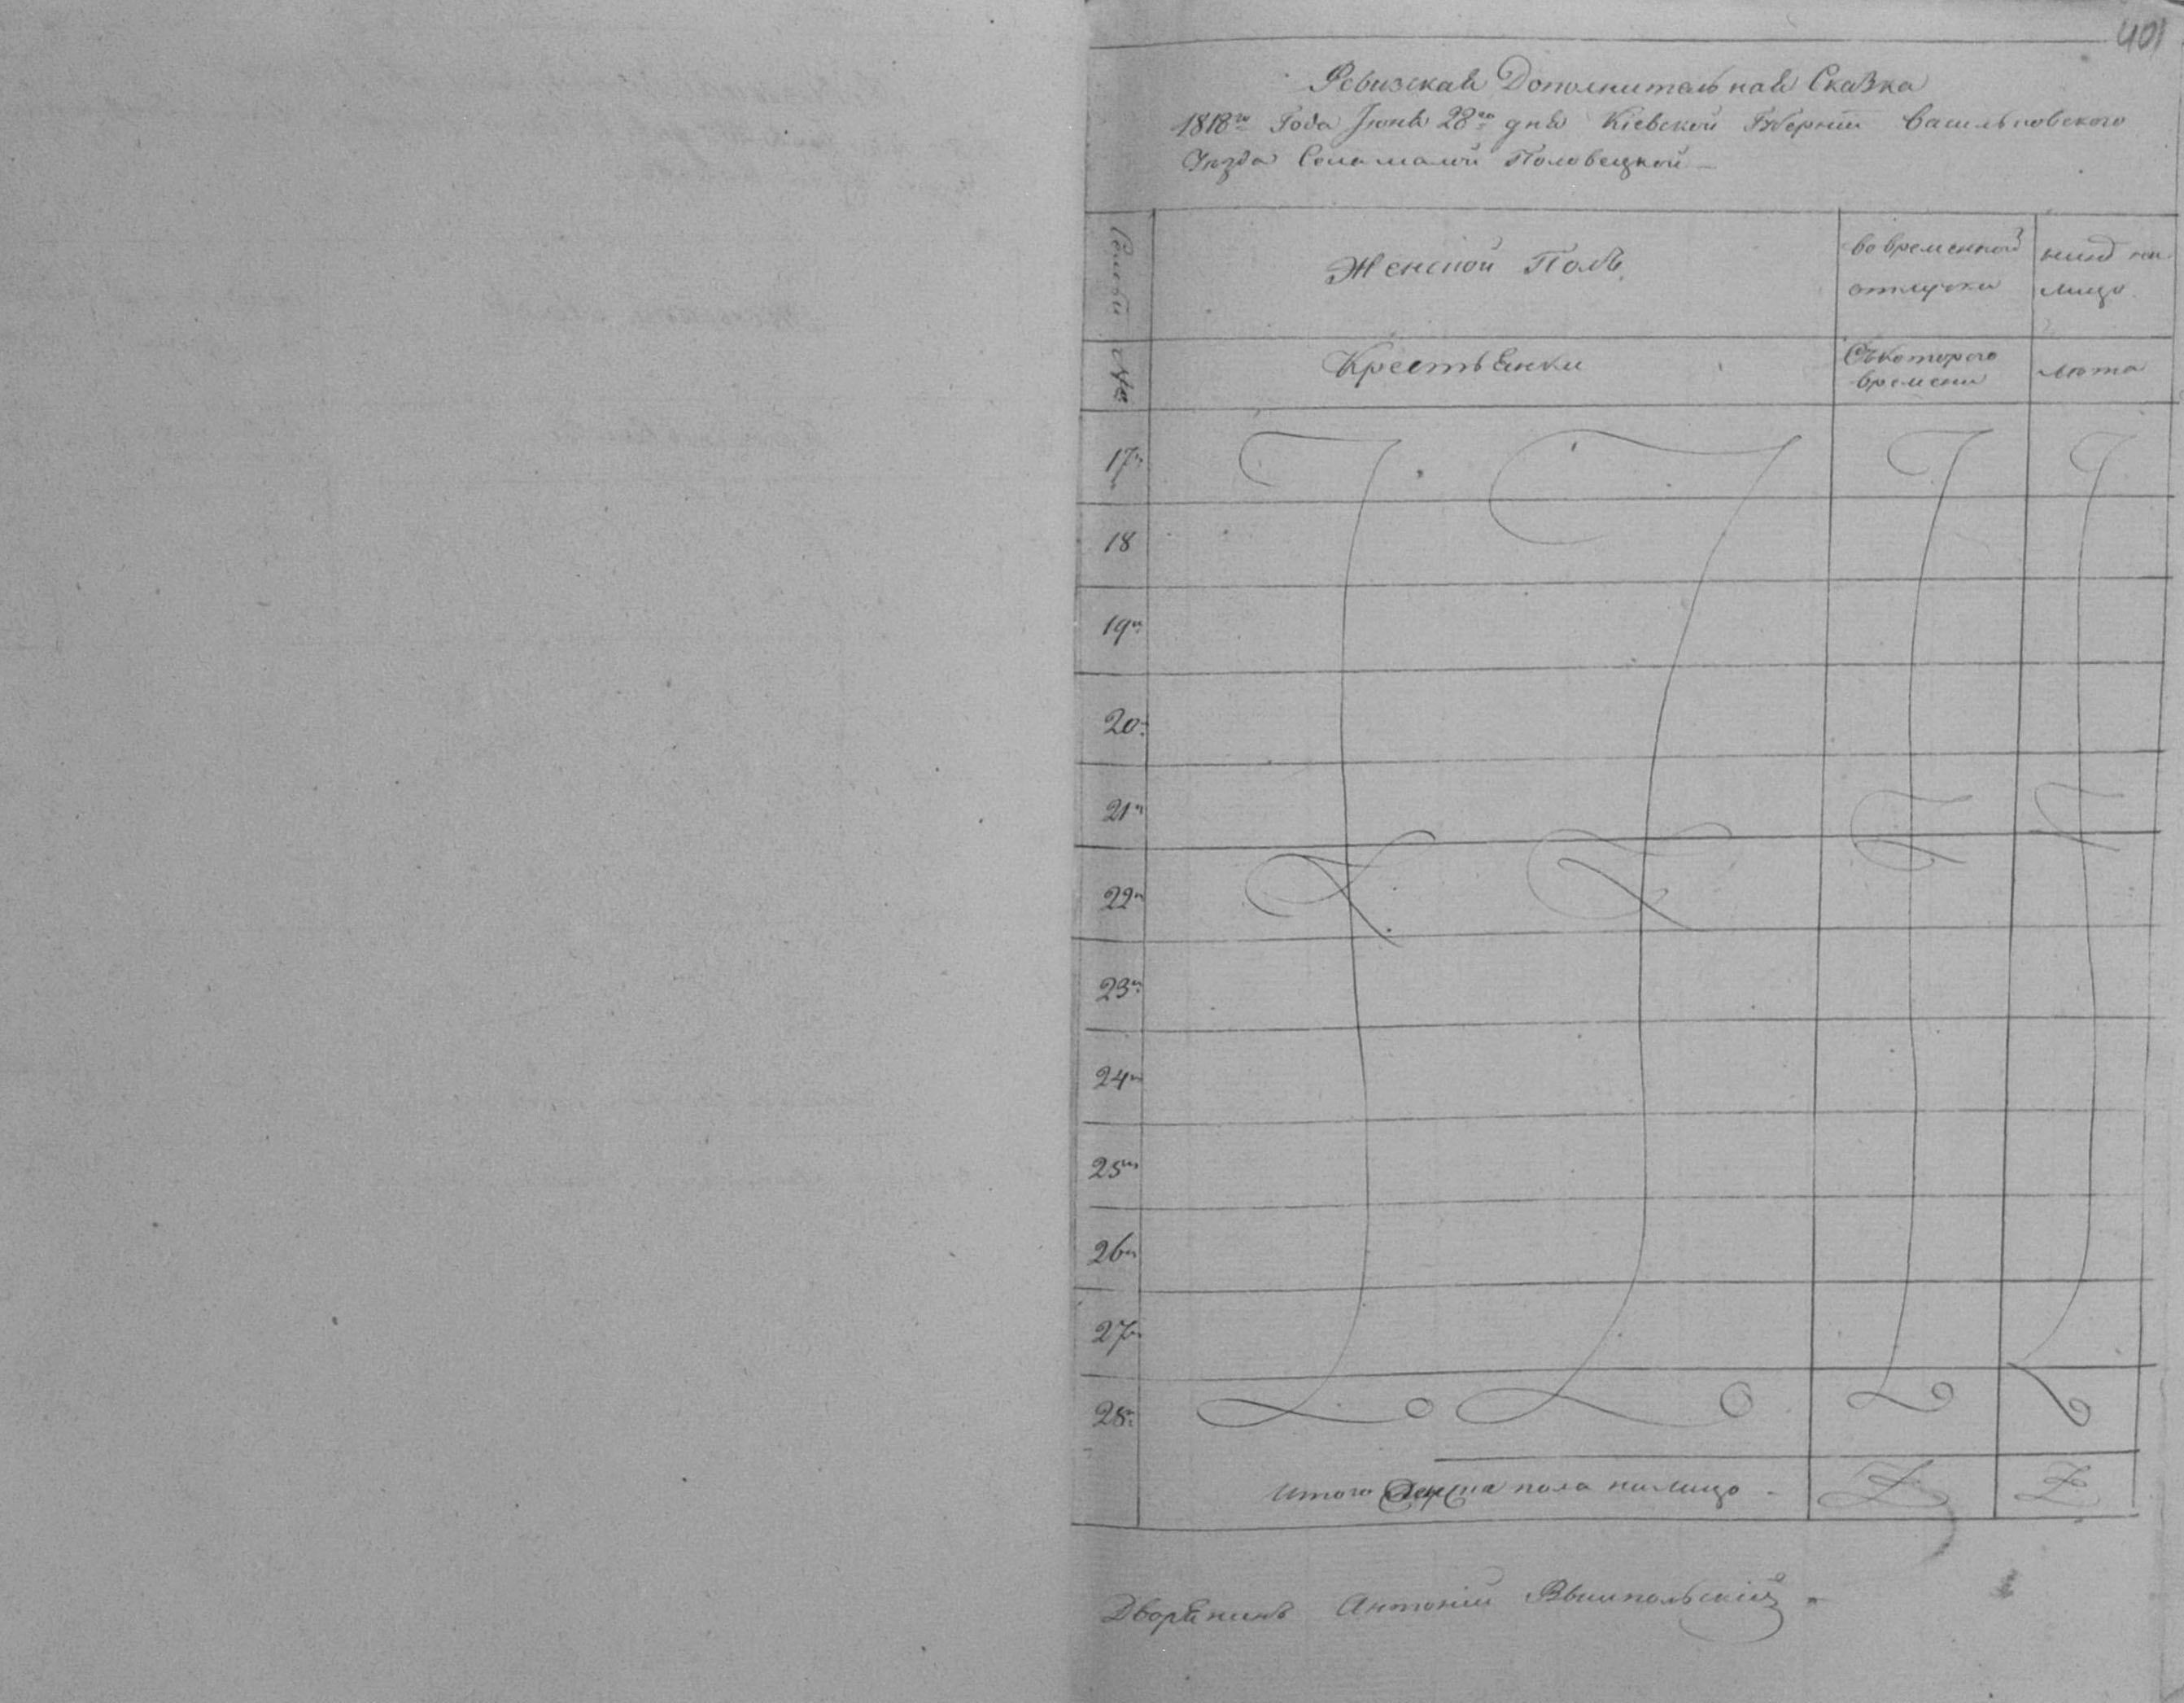 401
Ревизская Дополнительная Сказка
1818го Года Июня 28го дня Кіевской Губерніи Васильковского
Уезда Села малой Половецкой
Семьи
Женской Полъ
во временной
отлучки
ныне на
лицо
№
Крестьянки
Съ которого
времени
лета
17
18
19
20
21
22
23
24
25
26
27
28
Итого пола налицо
Дворянинъ Антоній Вышпольскій